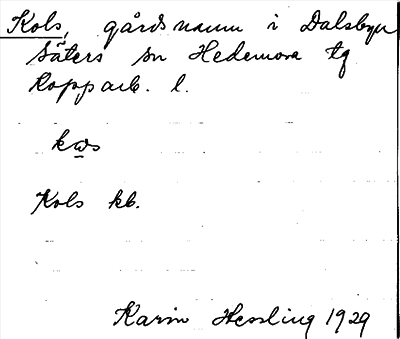 Kols, gårdsnamn i Dalsbyn
Säters sn Hedemora tg
Kopparb. l.
kɷs
Kols kb.
Karin Hessling 1929